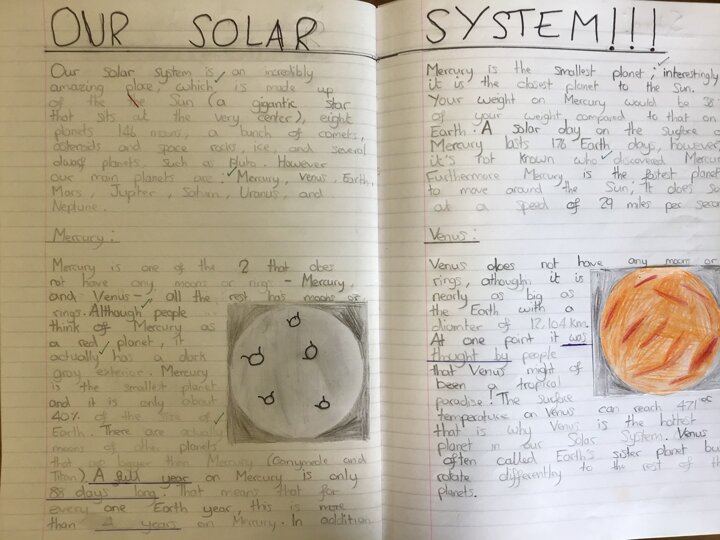 OUR SOLAR SYSTEM!!!
Our solar system is an incredibly
amazing place, which is made up
of the Sun (a gigantic star
that sits at the very center), eight
planets 146 moons, a bunch of comets,
asteroids and space rocks, ice, and several
dwarf planets, such as Pluto. However
our main planets are: Mercury, Venus, Earth,
Mars, Jupiter, Saturn, Uranus, and
Neptune.
Mercury:
Mercury is one of the 2 that does
not have any moons or rings - Mercury
and Venus -, all the rest has moons or
rings. Although people
think of Mercury as
a red planet, it
actually has a dark
gray exterior. Mercury
is the smallest planet
and it is only about
40% of the size of
Earth. There are actually
moons of other planets
that are bigger than Mercury (Ganymede and
Titan). A full year on Mercury is only
88 days long. That means that for
every one Earth year, this is more
than 4 years on Mercury. In addition
Mercury is the smallest planet; interestingly
it is the closest planet to the Sun.
Your weight on Mercury would be 38
of your weight compared to that on
Earth. A solar day on the surface
Mercury lasts 176 Earth days, however
it's not known who discovered Mercury
Furthermore Mercury is the fastest planet
to move around the Sun; It does so
at a speed of 29 miles per second
Venus:
Venus does not have any moons or
rings, athough it is
nearly as big as
the Earth with a
diamter of 12,104 km.
At one point it was
thought by people
that Venus might of
been a tropical
paradise! The surface
temperature on Venus can reach 471°C
that is why Venus is the hottest
planet in our Solar System. Venus
often called Earth's sister planet but
rotate differently to the rest of the
planets.